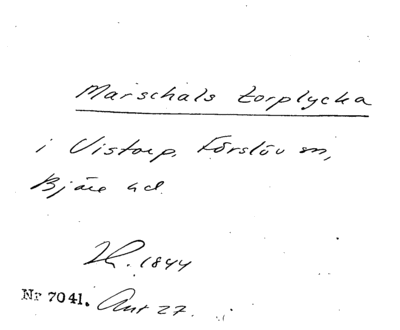 Marschals torplycka
i Vistorp, Förslöv sn,
Bjäre hd.
H. 1844
Nr 7041. Ant 27.